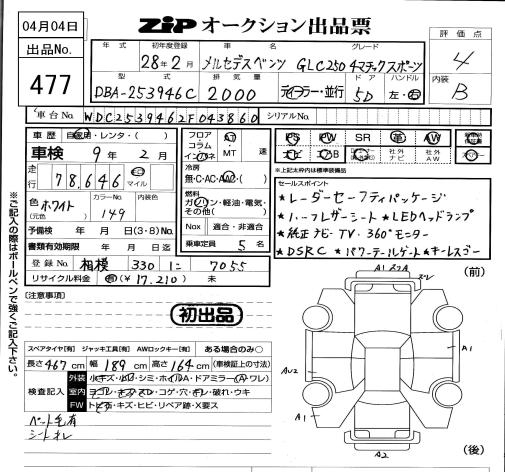 04月04日
ZIP オークション出品票
出品No.
477
評価点
4
内装
B
年式 初年度登録 車名 グレード
28年2月 メルセデスベンツ GLC250 4マチックスポーツ
型式 排気量 ドア ハンドル
DBA-253946C 2000 ディーラー・並行 5D 左・右
車台No. WDC2539462F043860 シリアルNo.
車歴 自家用・レンタ・( )
車検 9年2月
走行 78,646 km マイル
色 ホワイト (元色) カラーNo. 149
予備検 年 月 日(3・8)No.
書類有効期限 年 月 日迄
登録No. 相模 330 に 7055
リサイクル料金 済(¥17,210) 未
フロア コラム インパネ AT・MT 速
冷房 無・C・AC・AAC・( )
燃料 ガソリン・軽油・電気・その他( )
Nox 適合・非適合
乗車定員 5名
PS PW SR 革 AW
ナビ エアB 社外ナビ 社外AW
*上記太枠内は標準装備品
セールスポイント
★レーダーセーフティパッケージ
★ハーフレザーシート ★LEDヘッドランプ
★純正ナビ・TV・360°モニター
★DSRC ★パワーテールゲート ★キーレスゴー
※ご記入の際はボールペンで強くご記入下さい。
[注意事項]
初出品
スペアタイヤ[有] ジャッキ工具[有] AWロックキー[有] ある場合のみ○
長さ467cm 幅189cm 高さ164cm (車検証上の寸法)
検査記入
外装 小キズ・小凹・シミ・ホイルA・ドアミラー(A・ワレ)
室内 ヨゴレ・キズ・スレ・コゲ・穴・キレ・破れ・ウキ
FW トビ石・キズ・ヒビ・リペア跡・X要ス
ペット毛有
シートヨレ
(前)
A1
スレ
AU2
A1
A1
A2
(後)